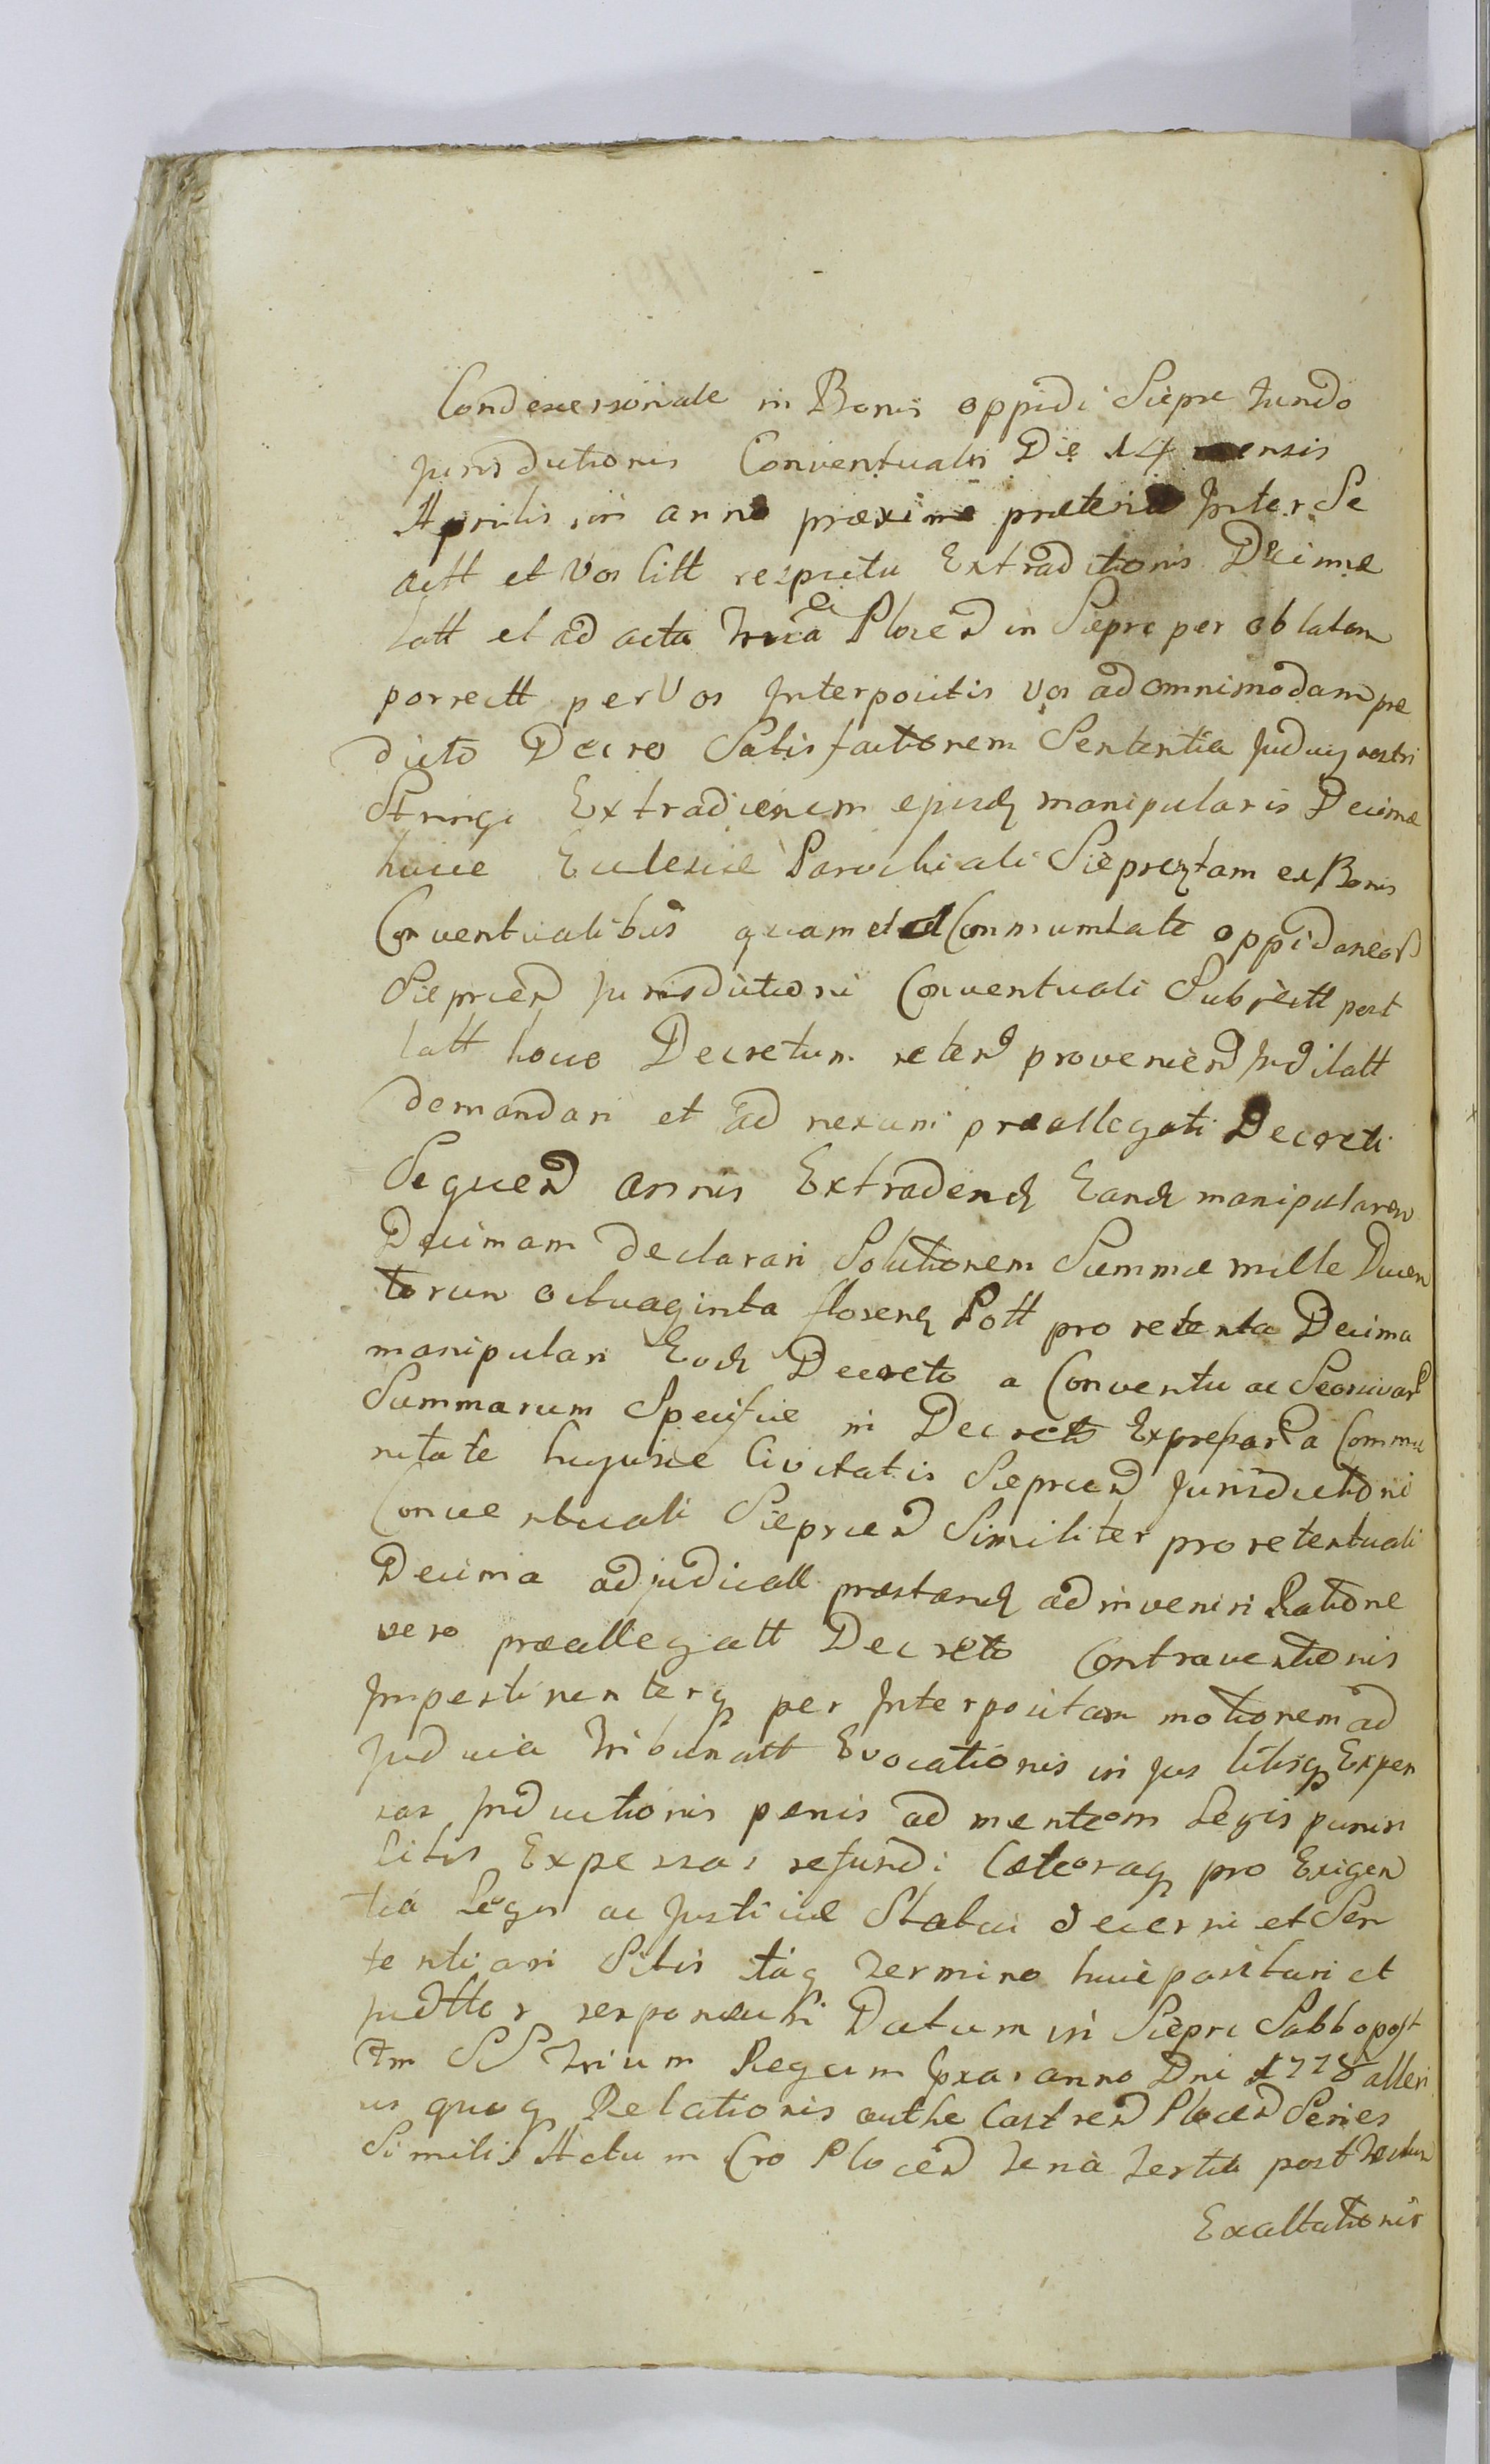 Condescensionale in Bonis oppidi Sieprc fundo
jurisdictionis Conventualis Die 14 mensis
Aprilis in anno proxime praeterito Inter Se
actt et Vos Citt respectu Extraditionis Decimae
latt et ad acta Plocen in Sieprc per oblatam
porrectt per Vos Interpositis Vos ad omnimodam prae
dicto Decreo Satisfactionem Sententia Judicij nostri
Stringi Extraditionem ejusd manipularis Decimae
huice Ecclesiae Parochiali Sieprcz tam ex Bonis
Conventualibus quam et a Communitate oppidaneor
Sieprcen Jurisdictioni Conventuali Subjectt post
latt hocce Decretum reten provenien Inditatt
demandari et ad nexum praeallegati Decreti
Sequen annis Extradend Eand manipularem
Decimam declarari Solutionem Summae mille Ducen
torum octuaginta florenq Poll pro retenta Decima
manipulari Eod Decreto a Conventu ac Seorsivar
Summarum Specifice in Decreto Expressar a Commu
nitate hujusce Civitatis Sieprcen Jurisdictioni
Conventuali Sieprcen Similiter pro retentuali
Decima adjudicatt praestand adinveniri Ratione
vero praeallegatt Decreto Contraventionis
Impertinenterq per Interpositam motionem ad
Judicia Tribunatt Evocationis in jus litisq Expen
sas Inductionis penis ad mentem Legis puniri
litis Expensas refundi Caeteraq pro Exigen
tia Legis ac Justiciae Statui decerni et Sen
tentiari Sitis itaq Termino huic parituri et
judttor responsuri Datum in Sieprc Sabbo post
Fm SS Trium Regum pxa anno Dni 1778 alleri
us quoq Relationis authe Castren Plocen Series
Similis Actum Cro Plocen Feria Tertia post Festum
Exaltationis